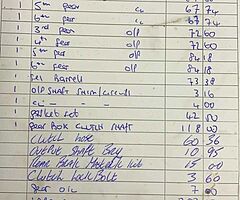 1 5th gear c/s 67 74
1 6th gear c/s 67 74
1 3rd gear o/p 72 60
1 4th gear o/p 72 60
1 5th gear o/p 84 18
1 6th gear o/p 84 18
1 Sel Barrell 73 38
1 o/p shaft shim/circlip 3 16
1 c/s 4 00
1 gasket set 42 50
gear box clutch shaft 118 00
Clutch hose 60 56
Output Shaft Bey 10 95
Kit 15 00
Clutch Lock Bolt 3 60
Gear oil 7 00